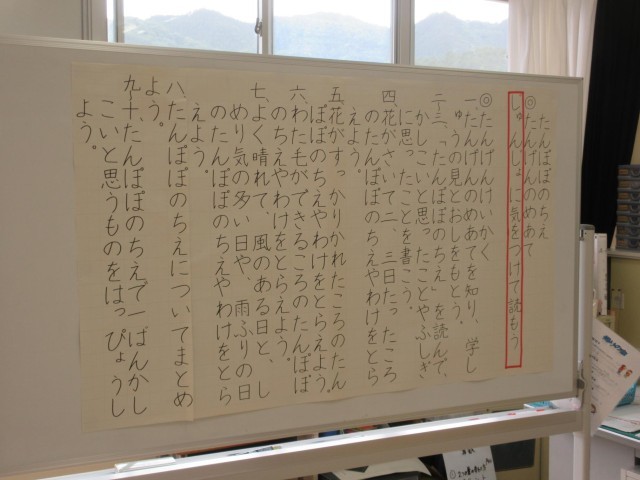 たんぽぽのちえ
◎たんげんのめあて
じゅんじょに気をつけて読もう
◎たんげんけいかく
一、たんげんのめあてを知り、学し
ゅうの見とおしをもとう。
二・三、「たんぽぽのちえ」を読んで、
かしこいと思ったことやふしぎ
に思ったことを書こう。
四、花がさいて二、三日たったころ
のたんぽぽのちえやわけをとら
えよう。
五、花がすっかりかれたころのたん
ぽぽのちえやわけをとらえよう。
六、わた毛ができるころのたんぽぽ
のちえやわけをとらえよう。
七、よく晴れて、風のある日と、し
めり気の多い日や、雨ふりの日
のたんぽぽのちえやわけをとら
えよう。
八、たんぽぽのちえについてまとめ
よう。
九、十、たんぽぽのちえで一ばんかし
こいと思うものをはっぴょうし
よう。